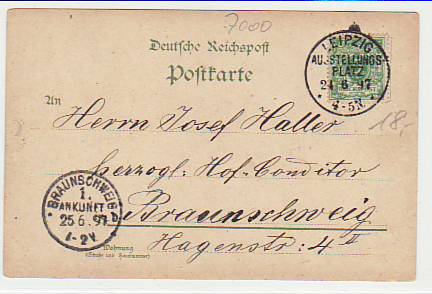 7000
Deutsche Reichspost
Postkarte
LEIPZIG
AUSSTELLUNGS-
PLATZ
24 6 97
* 4-5N. *
18,-
An
Herrn Josef Haller
herzogl. Hof-Conditor
BRAUNSCHWEIG
1.
ANKUNFT
25.6.97
1-2V
Braunschweig
Wohnung
(Straße und Hausnummer)
Hagenstr: 4 II